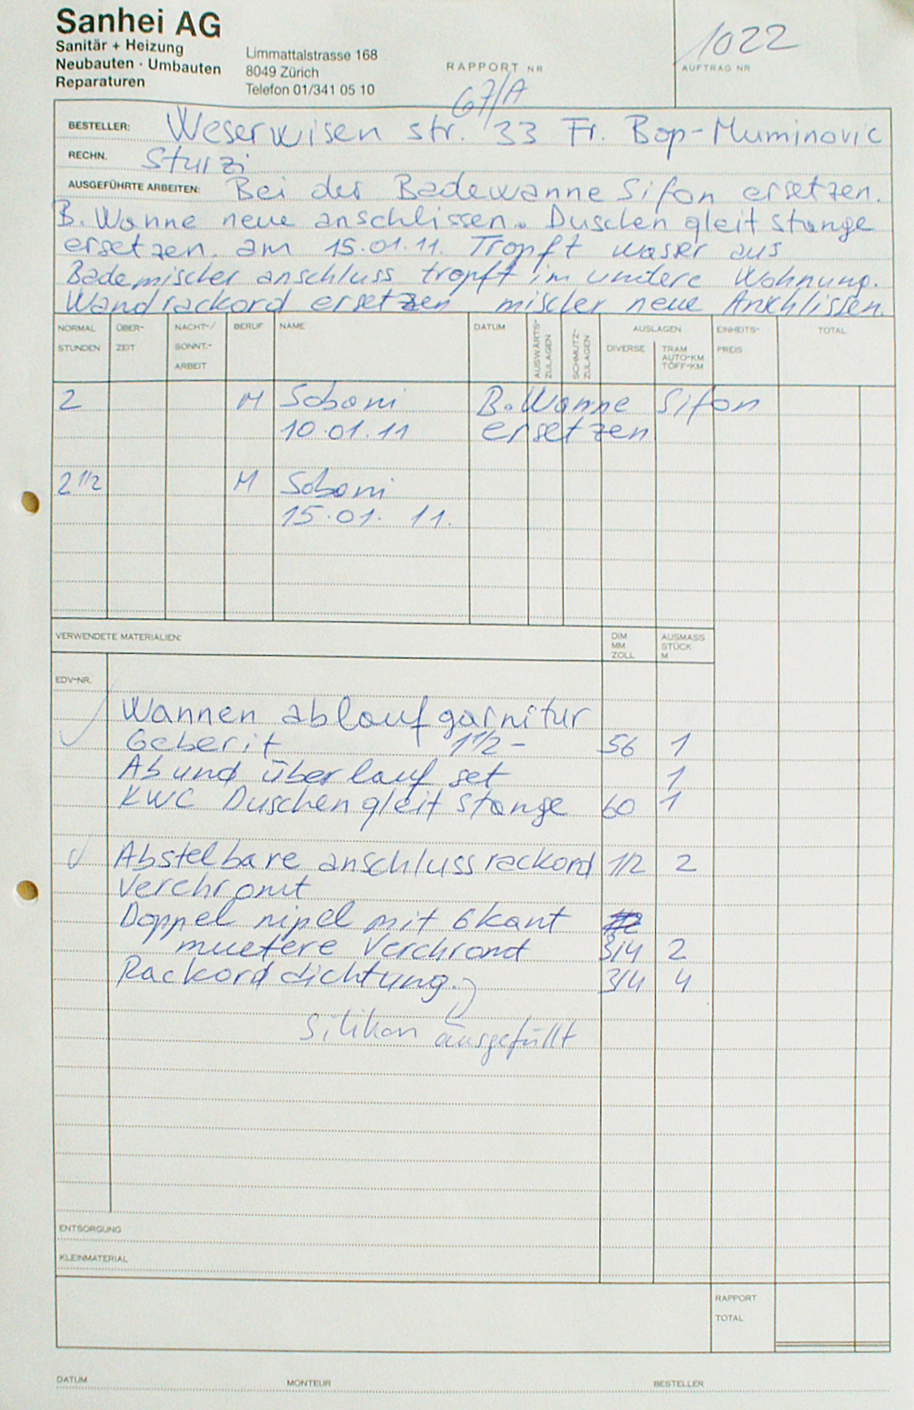 Sanhei AG
Sanitär + Heizung
Neubauten · Umbauten
Reparaturen
Limmattalstrasse 168
8049 Zürich
Telefon 01/341 05 10
RAPPORT NR
67/A
1022
AUFTRAG NR
BESTELLER: Weserwisen str. 33 Fr. Bop-Muminovic
RECHN. Sturzi
AUSGEFÜHRTE ARBEITEN: Bei der Badewanne Sifon ersetzen.
B. Wanne neue anschlissen. Duschen gleit stange
ersetzen. am 15.01.11. Tropft waser aus
Bademischer anschluss tropft im undere Wohnung.
Wandrackord ersetzen mischer neue Anschlissen.
NORMAL STUNDEN
ÜBER- ZEIT
NACHT-/ SONNT.- ARBEIT
BERUF
NAME
DATUM
AUSWÄRTS- ZULAGEN
SCHMUTZ- ZULAGEN
AUSLAGEN
DIVERSE
TRAM AUTO-KM TÖFF-KM
EINHEITS- PREIS
TOTAL
2 M Soboni B. Wanne Sifon
10.01.11 ersetzen
2 1/2 M Soboni
15.01. 11.
VERWENDETE MATERIALIEN:
DIM MM ZOLL
AUSMASS STÜCK M
EDV-NR.
Wannen ablauf garnitur
Geberit 1 1/2 - 56 1
Ab und überlauf set 1
KWC Duschen gleit stange 60 1
Abstelbare anschluss rackord 1/2 2
Verchromt
Doppel nipel mit 6kant
muetere Verchromt 3/4 2
Rackord dichtung. 3/4 4
Silikon ausgefüllt
ENTSORGUNG
KLEINMATERIAL
RAPPORT
TOTAL
DATUM MONTEUR BESTELLER